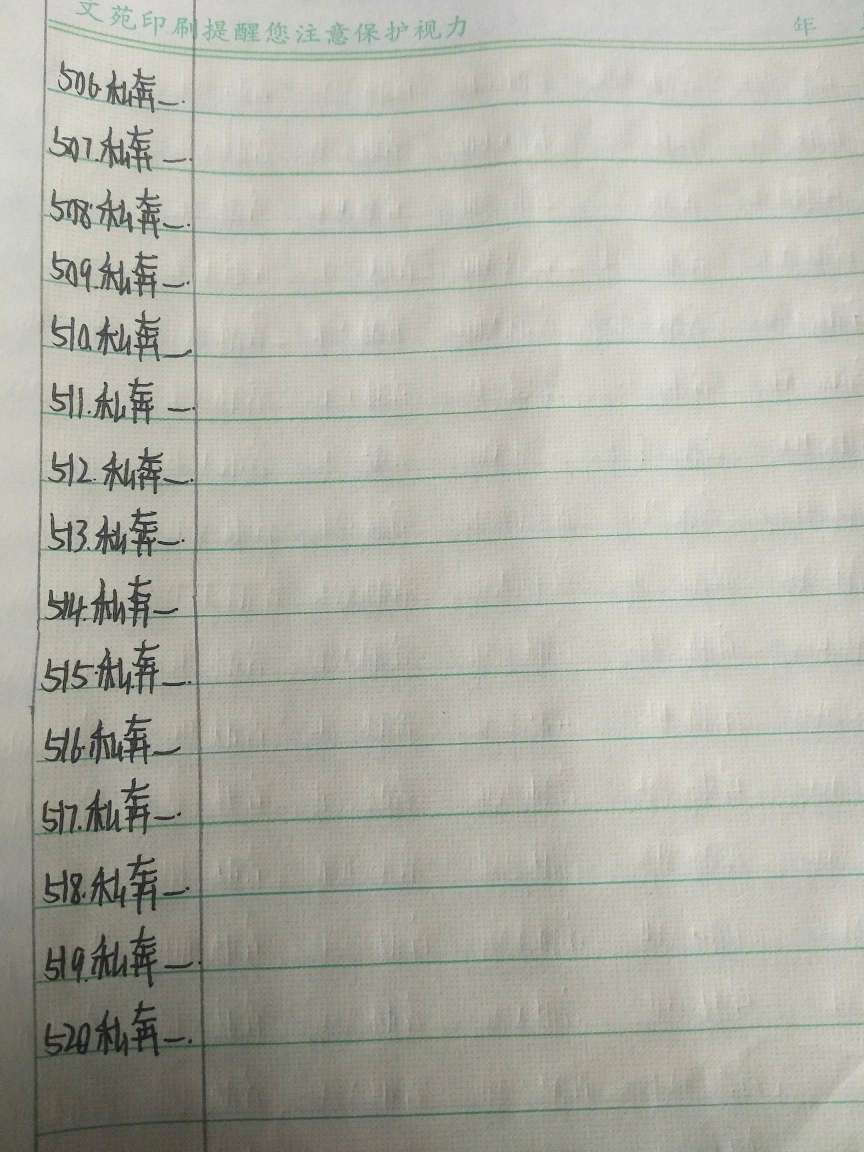 文苑印刷提醒您注意保护视力 年
506.私奔一.
507.私奔一.
508.私奔一.
509.私奔一.
510.私奔一
511.私奔一.
512.私奔一.
513.私奔一.
514.私奔一
515.私奔一.
516.私奔一
517.私奔一.
518.私奔一.
519.私奔一.
520私奔一.